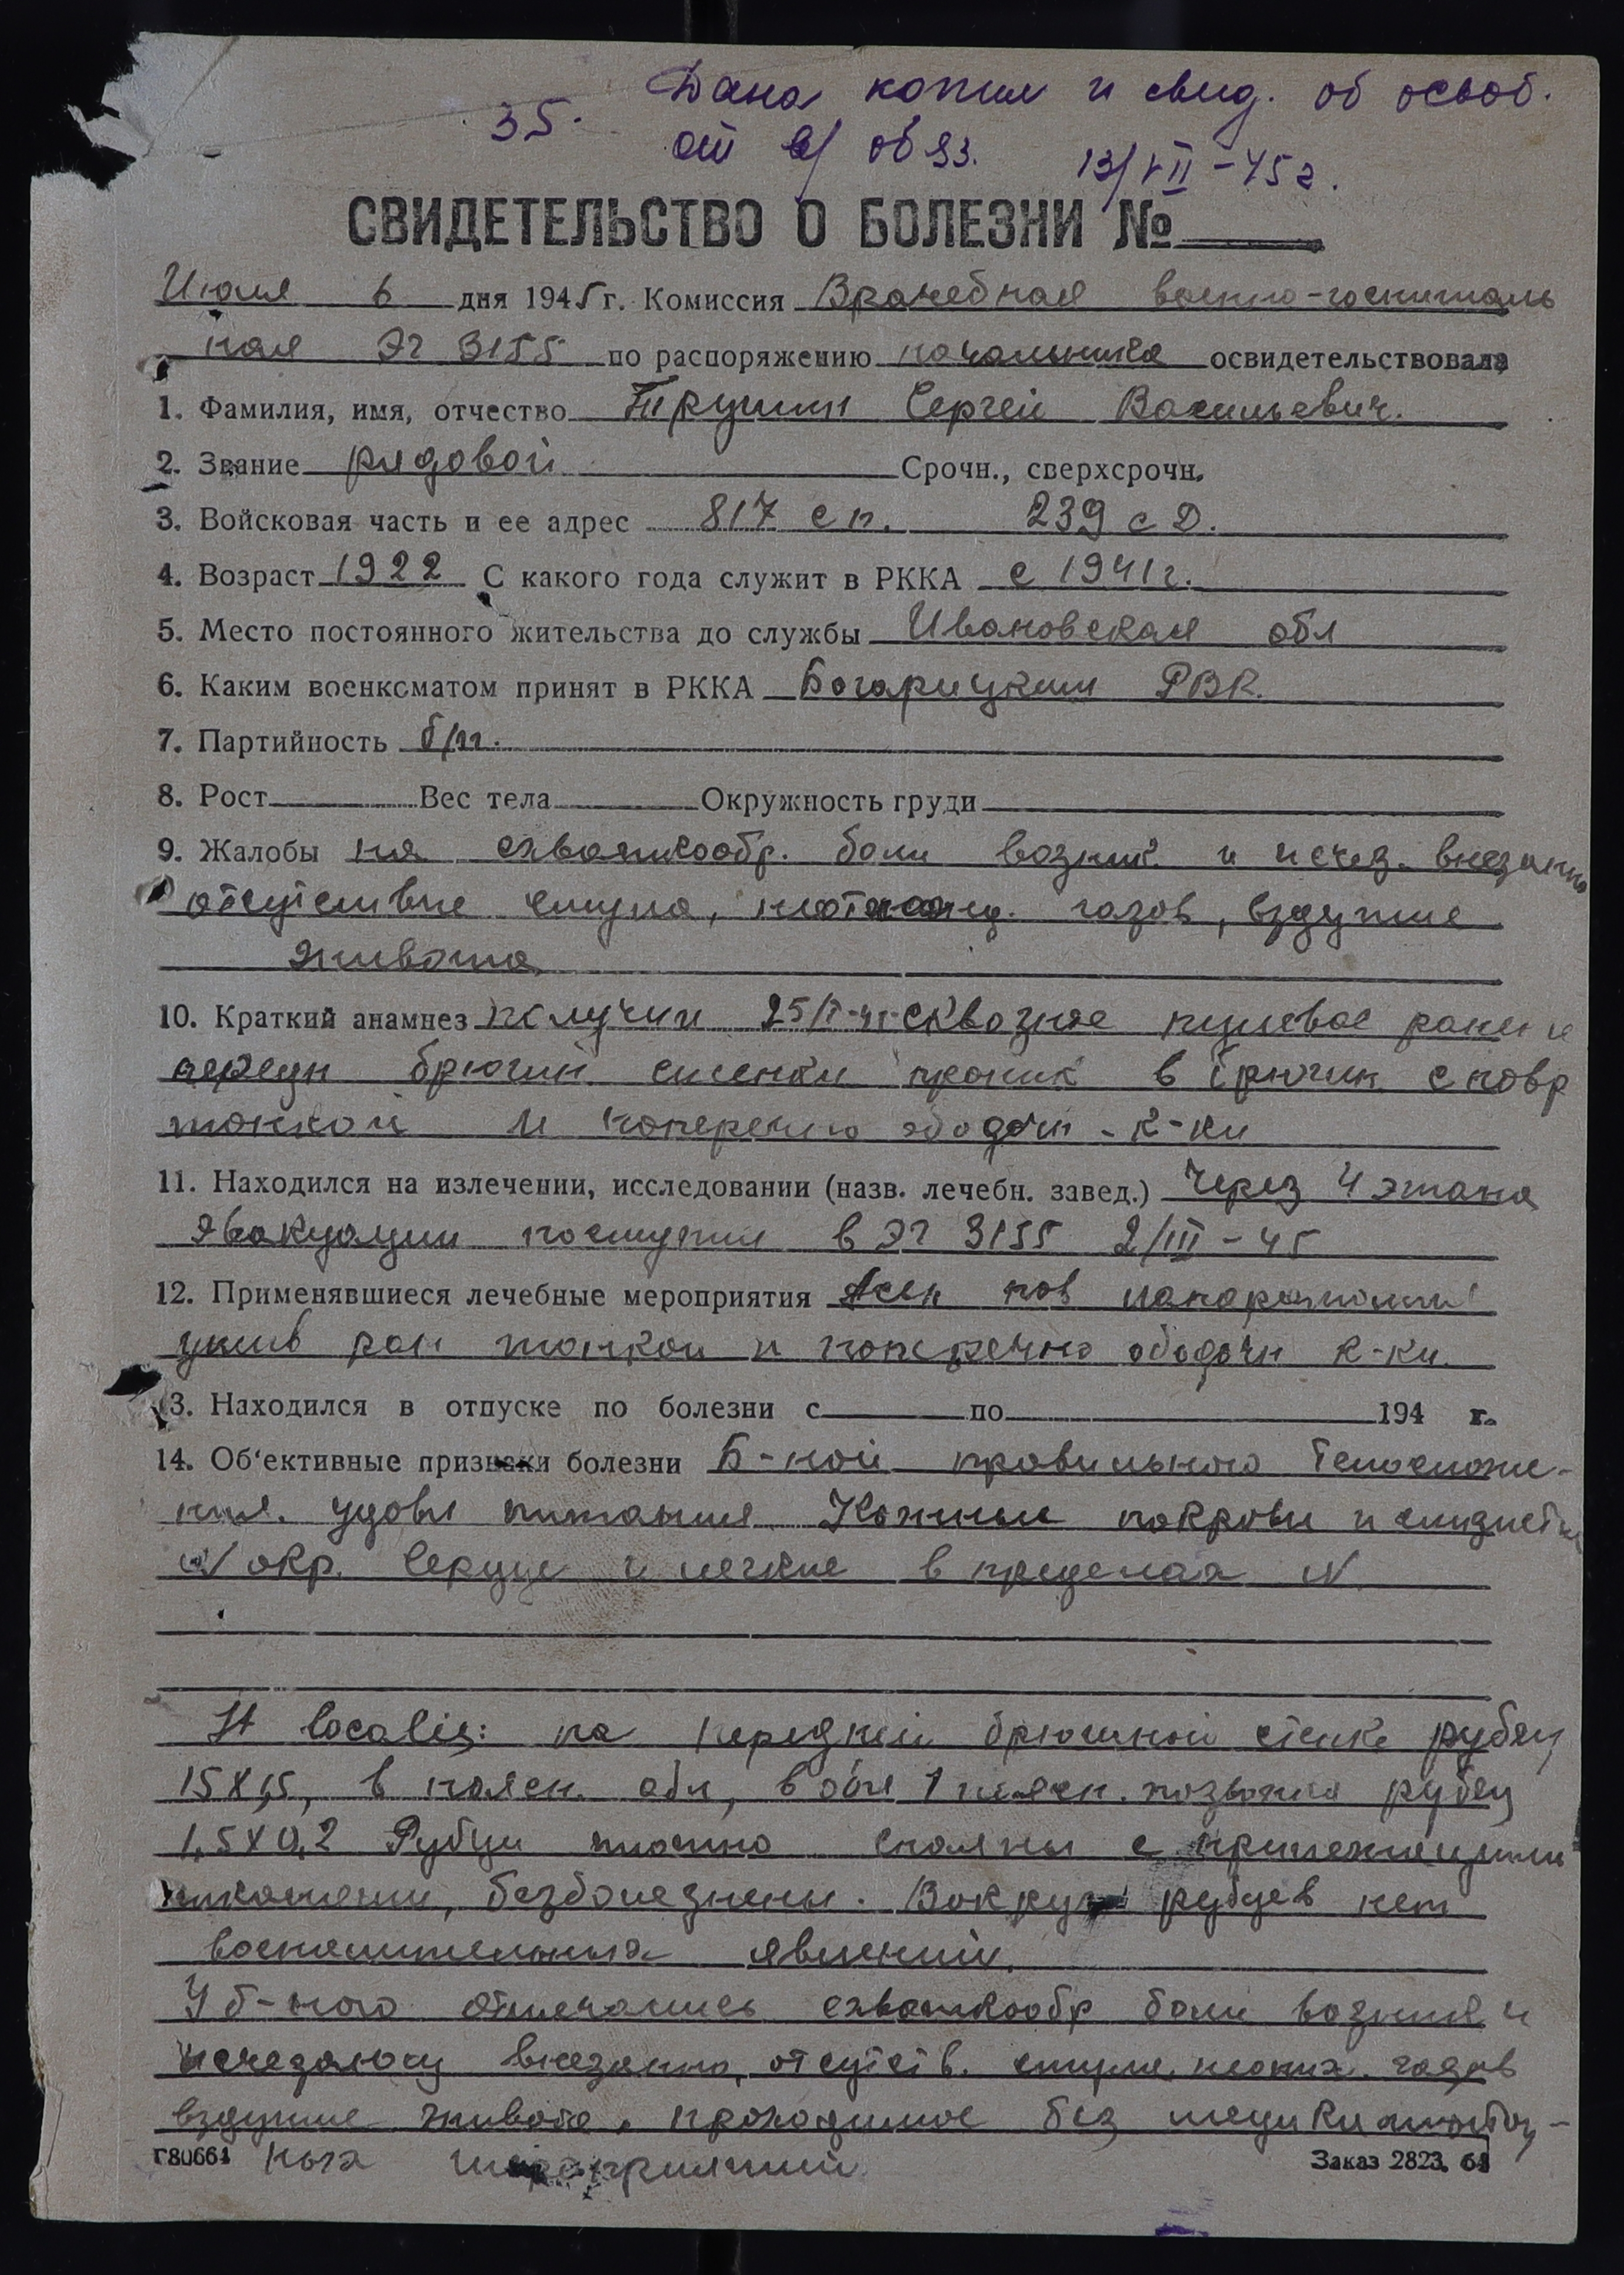 35. Дана копия и свид. об освоб.
от в/обяз. 13/VII-45г.
СВИДЕТЕЛЬСТВО О БОЛЕЗНИ №
Июля 6 дня 1945 г. Комиссия Врачебная военно-госпиталь
ная ЭГ 3155 по распоряжению начальника освидетельствовала
1. Фамилия, имя, отчество Трушин Сергей Васильевич.
2. Звание рядовой Срочн., сверхсрочн.
3. Войсковая часть и ее адрес 817 сп. 239 сд.
4. Возраст 1922 С какого года служит в РККА с 1941г.
5. Место постоянного жительства до службы Ивановская обл
6. Каким военкоматом принят в РККА РВК.
7. Партийность б/п.
8. Рост Вес тела Окружность груди
9. Жалобы на схваткообр. боли возник и исчез. внезапно
отсутствие стула, газов, вздутие
живота
10. Краткий анамнез получил сквозное пулевое ранен
передн брюшн стенки проник в брюшн с повр
тонкой и поперечно ободочн - к-ки
11. Находился на излечении, исследовании (назв. лечебн. завед.) Через 4 этапа
эвакуации поступил в ЭГ 3155 2/III-45
12. Применявшиеся лечебные мероприятия
ушив ран тонкой и поперечно ободочн к-ки.
13. Находился в отпуске по болезни с по 194 г.
14. Об'ективные признаки болезни Б-ной правильного телосложе-
ния. удовл питания Кожные покровы и слизист
N окр. Сердце и легкие в пределах N
St localis: на передней брюшной стенке рубец
15х1,5, в поясн. обл, в обл 1 поясн. позвонка рубец
1,5х0,2 Рубцы плотно спаяны с прилежащими
тканями, безболезнены. Вокруг рубцев нет
воспалительных явлений.
У б-ного отмечались схваткообр боли возник и
внезапно, отсутств. стула, газов
вздутие живота, проходящее без медикаментоз-
ных мероприятий
Г80664 Заказ 2823. 64